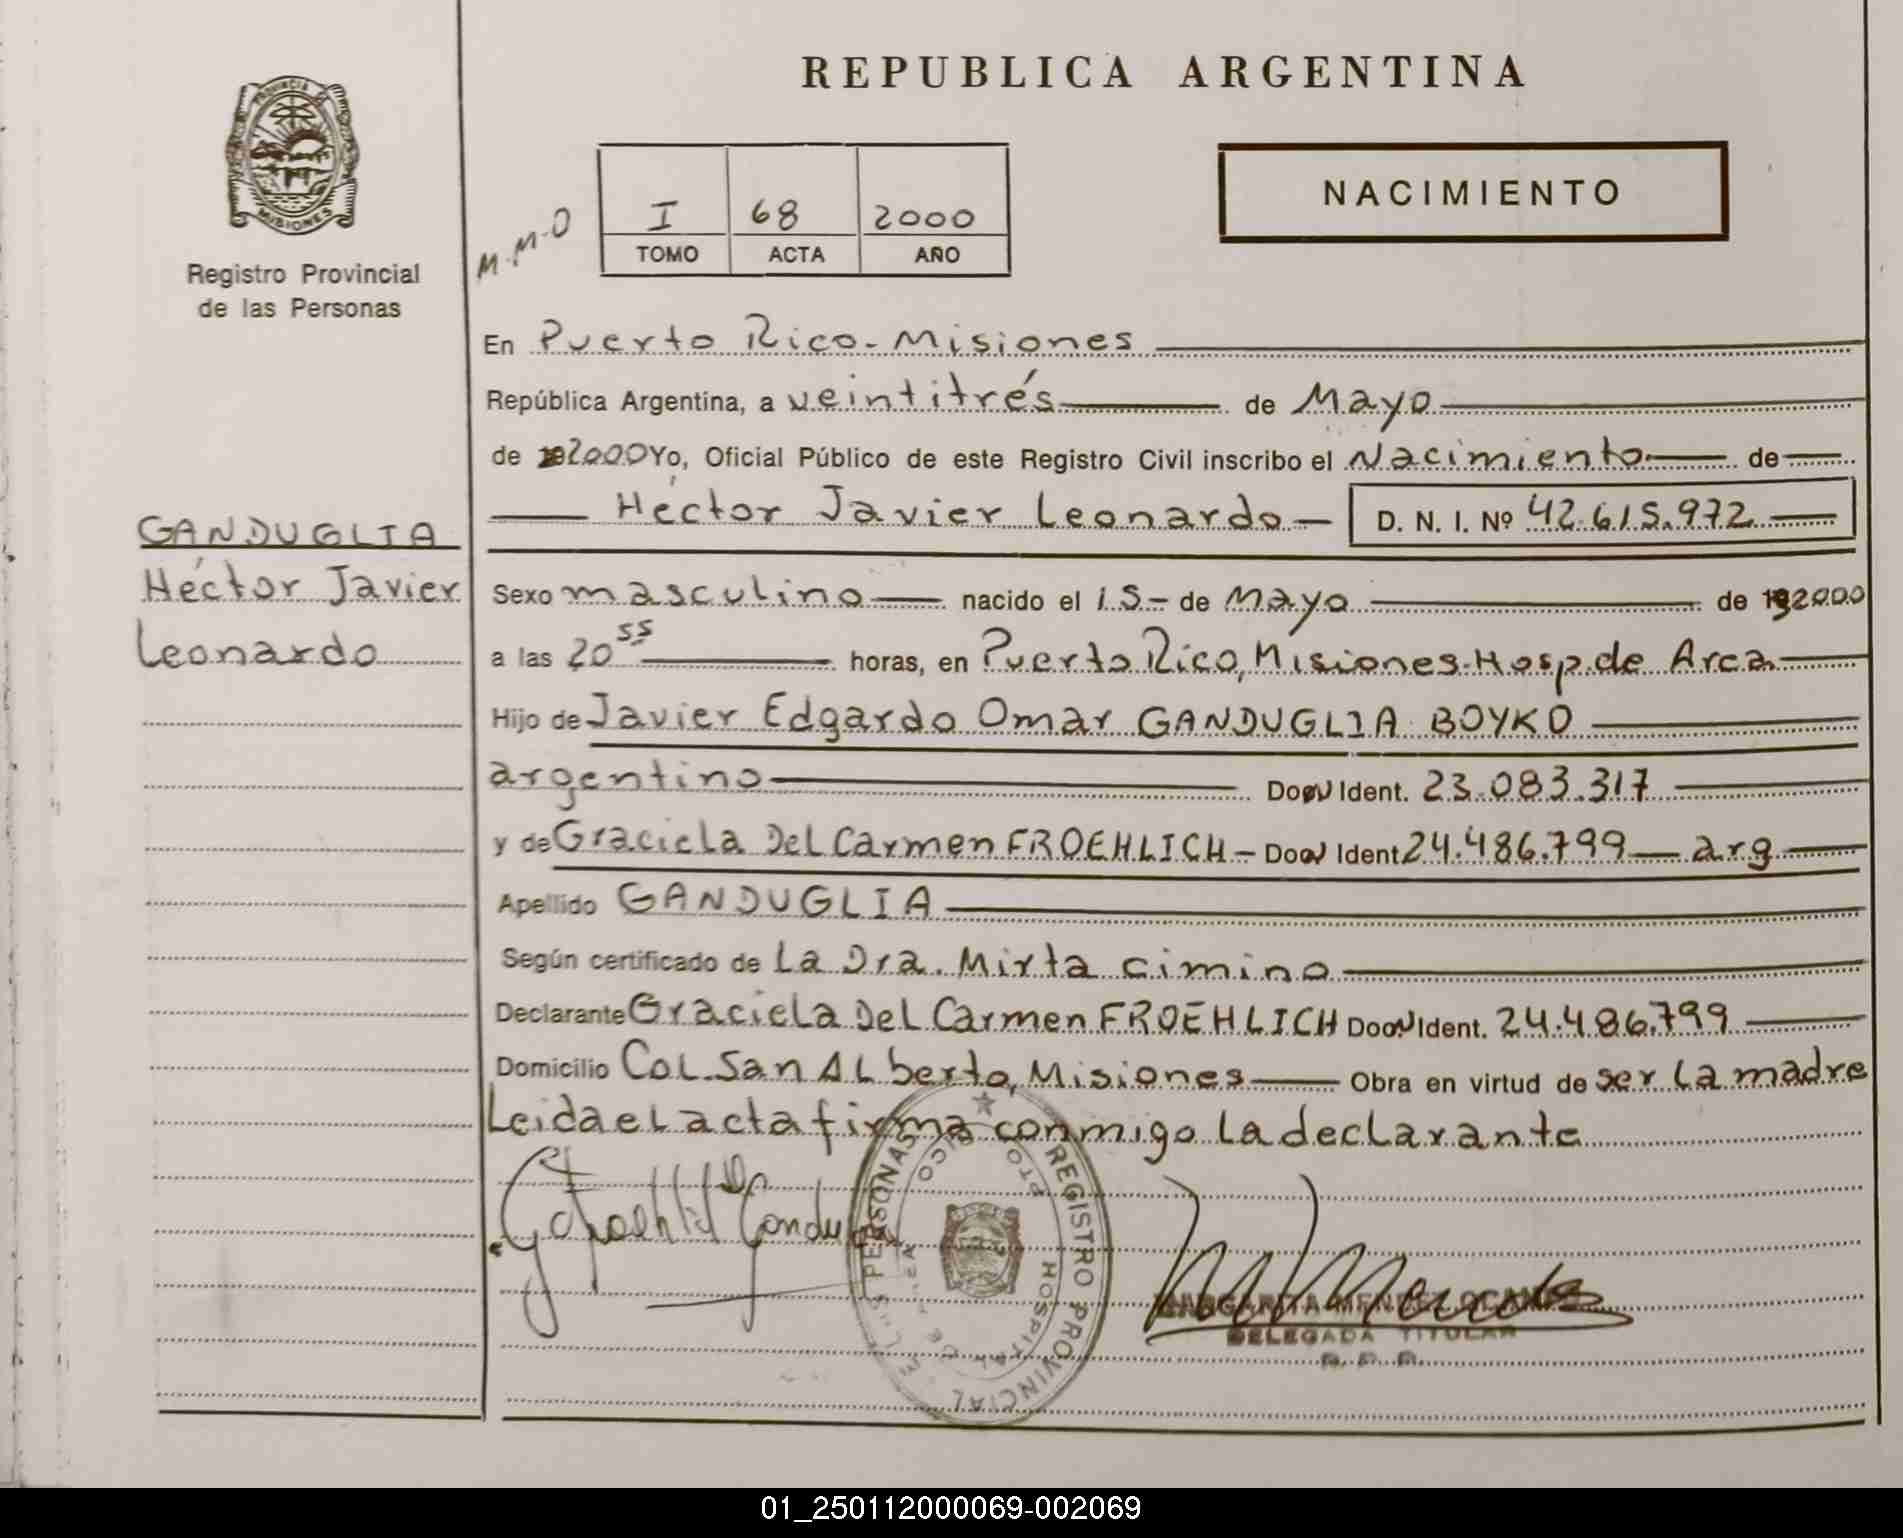 REPUBLICA ARGENTINA
PROVINCIA DE
MISIONES
Registro Provincial
de las Personas
M.M.O
I 68 2000
TOMO ACTA AÑO
NACIMIENTO
En Puerto Rico - Misiones
República Argentina, a veintitrés de Mayo
de 2000 Yo, Oficial Público de este Registro Civil inscribo el Nacimiento de
Héctor Javier Leonardo D. N. I. Nº 42.615.972
GANDUGLIA
Héctor Javier
Leonardo
Sexo masculino nacido el 15 - de Mayo de 2000
a las 20 55 horas, en Puerto Rico, Misiones - Hosp. de Area
Hijo de Javier Edgardo Omar GANDUGLIA BOYKO
argentino Doc Ident. 23.083.317
y de Graciela Del Carmen FROEHLICH - Doc Ident 24.486.799 arg
Apellido GANDUGLIA
Según certificado de La Dra. Mirta Cimino
Declarante Graciela Del Carmen FROEHLICH Doc Ident. 24.486.799
Domicilio Col. San Alberto, Misiones Obra en virtud de ser la madre
Leida el acta firma conmigo la declarante
REGISTRO PROVINCIAL PERSONAS
PTO RICO
HOSPITAL
MARGARITA
DELEGADA TITULAR
R. P. P.
01_250112000069-002069